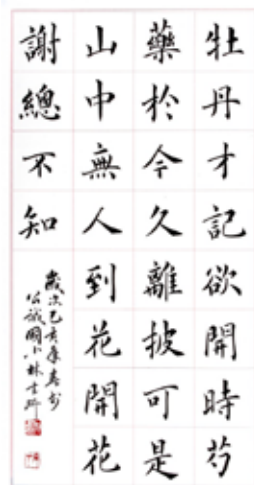 牡丹才記欲開時芍
藥於今久離披可是
山中無人到花開花
謝總不知
歲次乙亥年春於
公誠國小林士